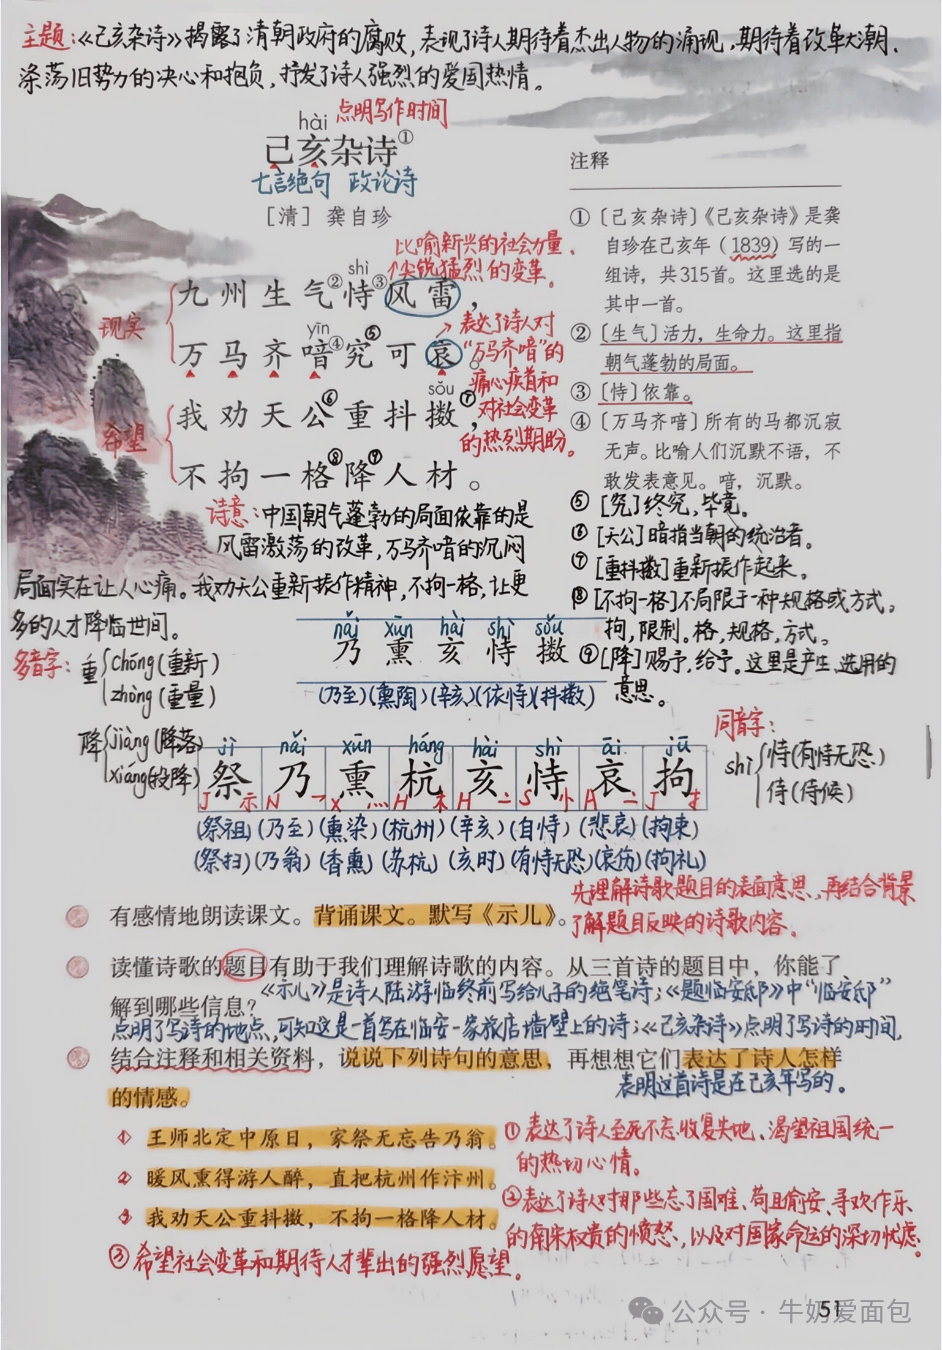 主题:《己亥杂诗》揭露了清朝政府的腐败,表现了诗人期待着杰出人物的涌现,期待着改革大潮、
涤荡旧势力的决心和抱负,抒发了诗人强烈的爱国热情。
hài 点明写作时间
己亥杂诗①
七言绝句 政论诗
[清] 龚自珍
比喻新兴的社会力量、
尖锐猛烈的变革。
shì
九州生气②恃③风雷,
现实
yīn
万马齐喑④究⑤可哀。
表达了诗人对
“万马齐喑”的
痛心疾首和
对社会变革
的热烈期盼。
sǒu
我劝天公⑥重抖擞⑦,
希望
不拘一格⑧降⑨人材。
诗意:中国朝气蓬勃的局面依靠的是
风雷激荡的改革,万马齐喑的沉闷
局面实在让人心痛。我劝天公重新振作精神,不拘一格,让更
多的人才降临世间。
注释
①〔己亥杂诗〕《己亥杂诗》是龚
自珍在己亥年(1839)写的一
组诗,共315首。这里选的是
其中一首。
②〔生气〕活力,生命力。这里指
朝气蓬勃的局面。
③〔恃〕依靠。
④〔万马齐喑〕所有的马都沉寂
无声。比喻人们沉默不语,不
敢发表意见。喑,沉默。
⑤[究]终究,毕竟。
⑥[天公]暗指当朝的统治者。
⑦[重抖擞]重新振作起来。
⑧[不拘一格]不局限于一种规格或方式。
拘,限制。格,规格,方式。
⑨[降]赐予,给予。这里是产生、选用的
意思。
多音字: 重 chóng(重新)
zhòng(重量)
降 jiàng(降落)
xiáng(投降)
nǎi xūn hài shì sǒu
乃 熏 亥 恃 擞
(乃至)(熏陶)(辛亥)(依恃)(抖擞)
同音字:
shì 恃(有恃无恐)
侍(侍候)
jì nǎi xūn háng hài shì āi jū
祭 乃 熏 杭 亥 恃 哀 拘
J 示 N 乛 X 灬 H 木 H 亠 S 忄 A 亠 J 扌
(祭祖)(乃至)(熏染)(杭州)(辛亥)(自恃)(悲哀)(拘束)
(祭扫)(乃翁)(香熏)(苏杭)(亥时)(有恃无恐)(哀伤)(拘礼)
先理解诗歌题目的表面意思、再结合背景
了解题目反映的诗歌内容。
有感情地朗读课文。背诵课文。默写《示儿》。
读懂诗歌的题目有助于我们理解诗歌的内容。从三首诗的题目中,你能了
解到哪些信息?
《示儿》是诗人陆游临终前写给儿子的绝笔诗;《题临安邸》中“临安邸”
点明了写诗的地点,可知这是一首写在临安一家旅店墙壁上的诗;《己亥杂诗》点明了写诗的时间,
表明这首诗是在己亥年写的。
结合注释和相关资料,说说下列诗句的意思,再想想它们表达了诗人怎样
的情感。
① 王师北定中原日,家祭无忘告乃翁。
② 暖风熏得游人醉,直把杭州作汴州。
③ 我劝天公重抖擞,不拘一格降人材。
①表达了诗人至死不忘收复失地、渴望祖国统一
的热切心情。
②表达了诗人对那些忘了国难、苟且偷安、寻欢作乐
的南宋权贵的愤怒,以及对国家命运的深切忧虑。
③希望社会变革和期待人才辈出的强烈愿望。
51
公众号·牛奶爱面包